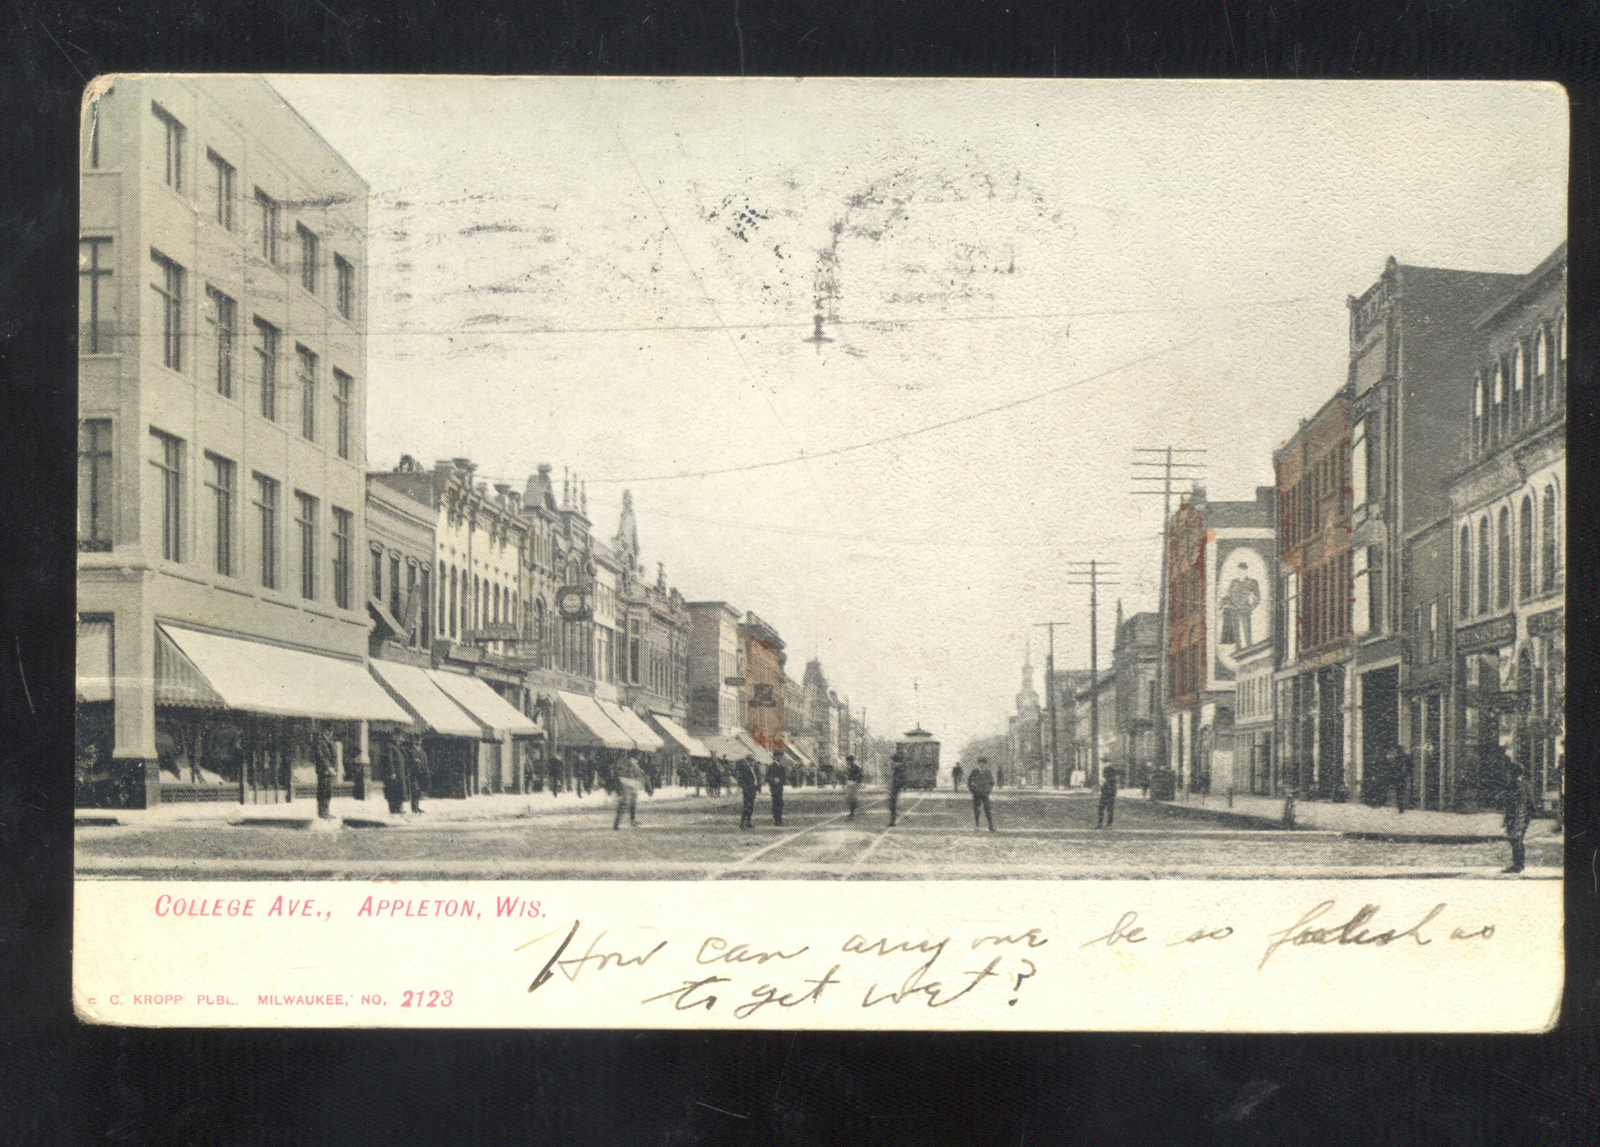 COLLEGE AVE., APPLETON, WIS.
How can any one be so foolish as
to get wet?
E. C. KROPP PUBL. MILWAUKEE, NO. 2123